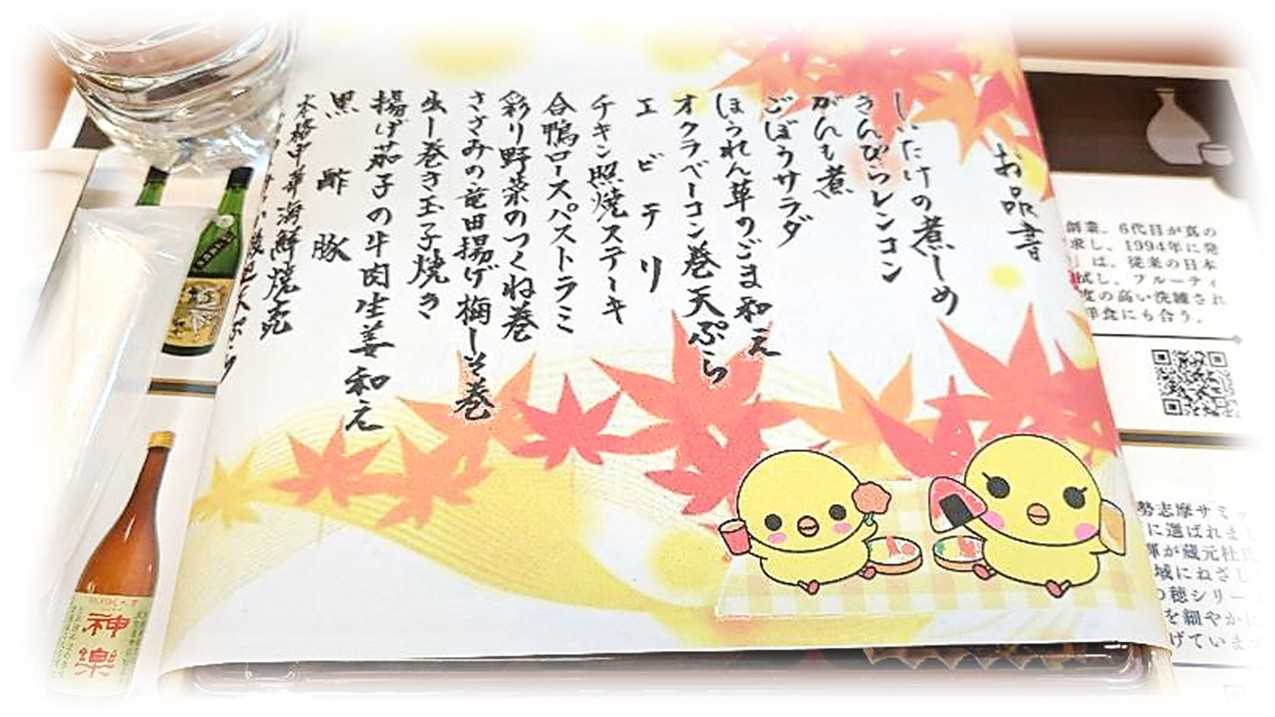 お品書
しいたけの煮しめ
きんぴらレンコン
がんも煮
ごぼうサラダ
ほうれん草のごま和え
オクラベーコン巻天ぷら
エビチリ
チキン照焼ステーキ
合鴨ロースパストラミ
彩り野菜のつくね巻
ささみの竜田揚げ梅しそ巻
出し巻き玉子焼き
揚げ茄子の牛肉生姜和え
黒酢豚
本格中華海鮮焼売
天ぷら
創業。6代目が真の
求し、1994年に発
は、従来の日本
試し、フルーティ
度の高い洗練され
洋食にも合う。
勢志摩サミッ
に選ばれまし
が蔵元杜氏
域にねざし
の穂シリー
を細やかに
げていま
神楽